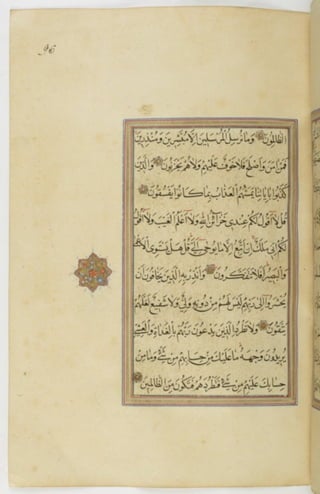 الظَّالِمُونَ وَمَا نُرْسِلُ الْمُرْسَلِينَ اِلَّا مُبَشِّرِينَ وَمُنْذِرِينَ
فَمَنْ اٰمَنَ وَاَصْلَحَ فَلَا خَوْفٌ عَلَيْهِمْ وَلَا هُمْ يَحْزَنُونَ وَالَّذِينَ
كَذَّبُوا بِاٰيَاتِنَا يَمَسُّهُمُ الْعَذَابُ بِمَا كَانُوا يَفْسُقُونَ
قُلْ لَا اَقُولُ لَكُمْ عِنْدِي خَزَائِنُ اللهِ وَلَا اَعْلَمُ الْغَيْبَ وَلَا اَقُولُ
لَكُمْ اِنِّي مَلَكٌ اِنْ اَتَّبِعُ اِلَّا مَا يُوحٰى اِلَيَّ قُلْ هَلْ يَسْتَوِي الْاَعْمٰى
وَالْبَصِيرُ اَفَلَا تَتَفَكَّرُونَ وَاَنْذِرْ بِهِ الَّذِينَ يَخَافُونَ اَنْ
يُحْشَرُوا اِلٰى رَبِّهِمْ لَيْسَ لَهُمْ مِنْ دُونِهِ وَلِيٌّ وَلَا شَفِيعٌ لَعَلَّهُمْ
يَتَّقُونَ وَلَا تَطْرُدِ الَّذِينَ يَدْعُونَ رَبَّهُمْ بِالْغَدٰوةِ وَالْعَشِيِّ
يُرِيدُونَ وَجْهَهُ مَا عَلَيْكَ مِنْ حِسَابِهِمْ مِنْ شَيْءٍ وَمَا مِنْ
حِسَابِكَ عَلَيْهِمْ مِنْ شَيْءٍ فَتَطْرُدَهُمْ فَتَكُونَ مِنَ الظَّالِمِينَ